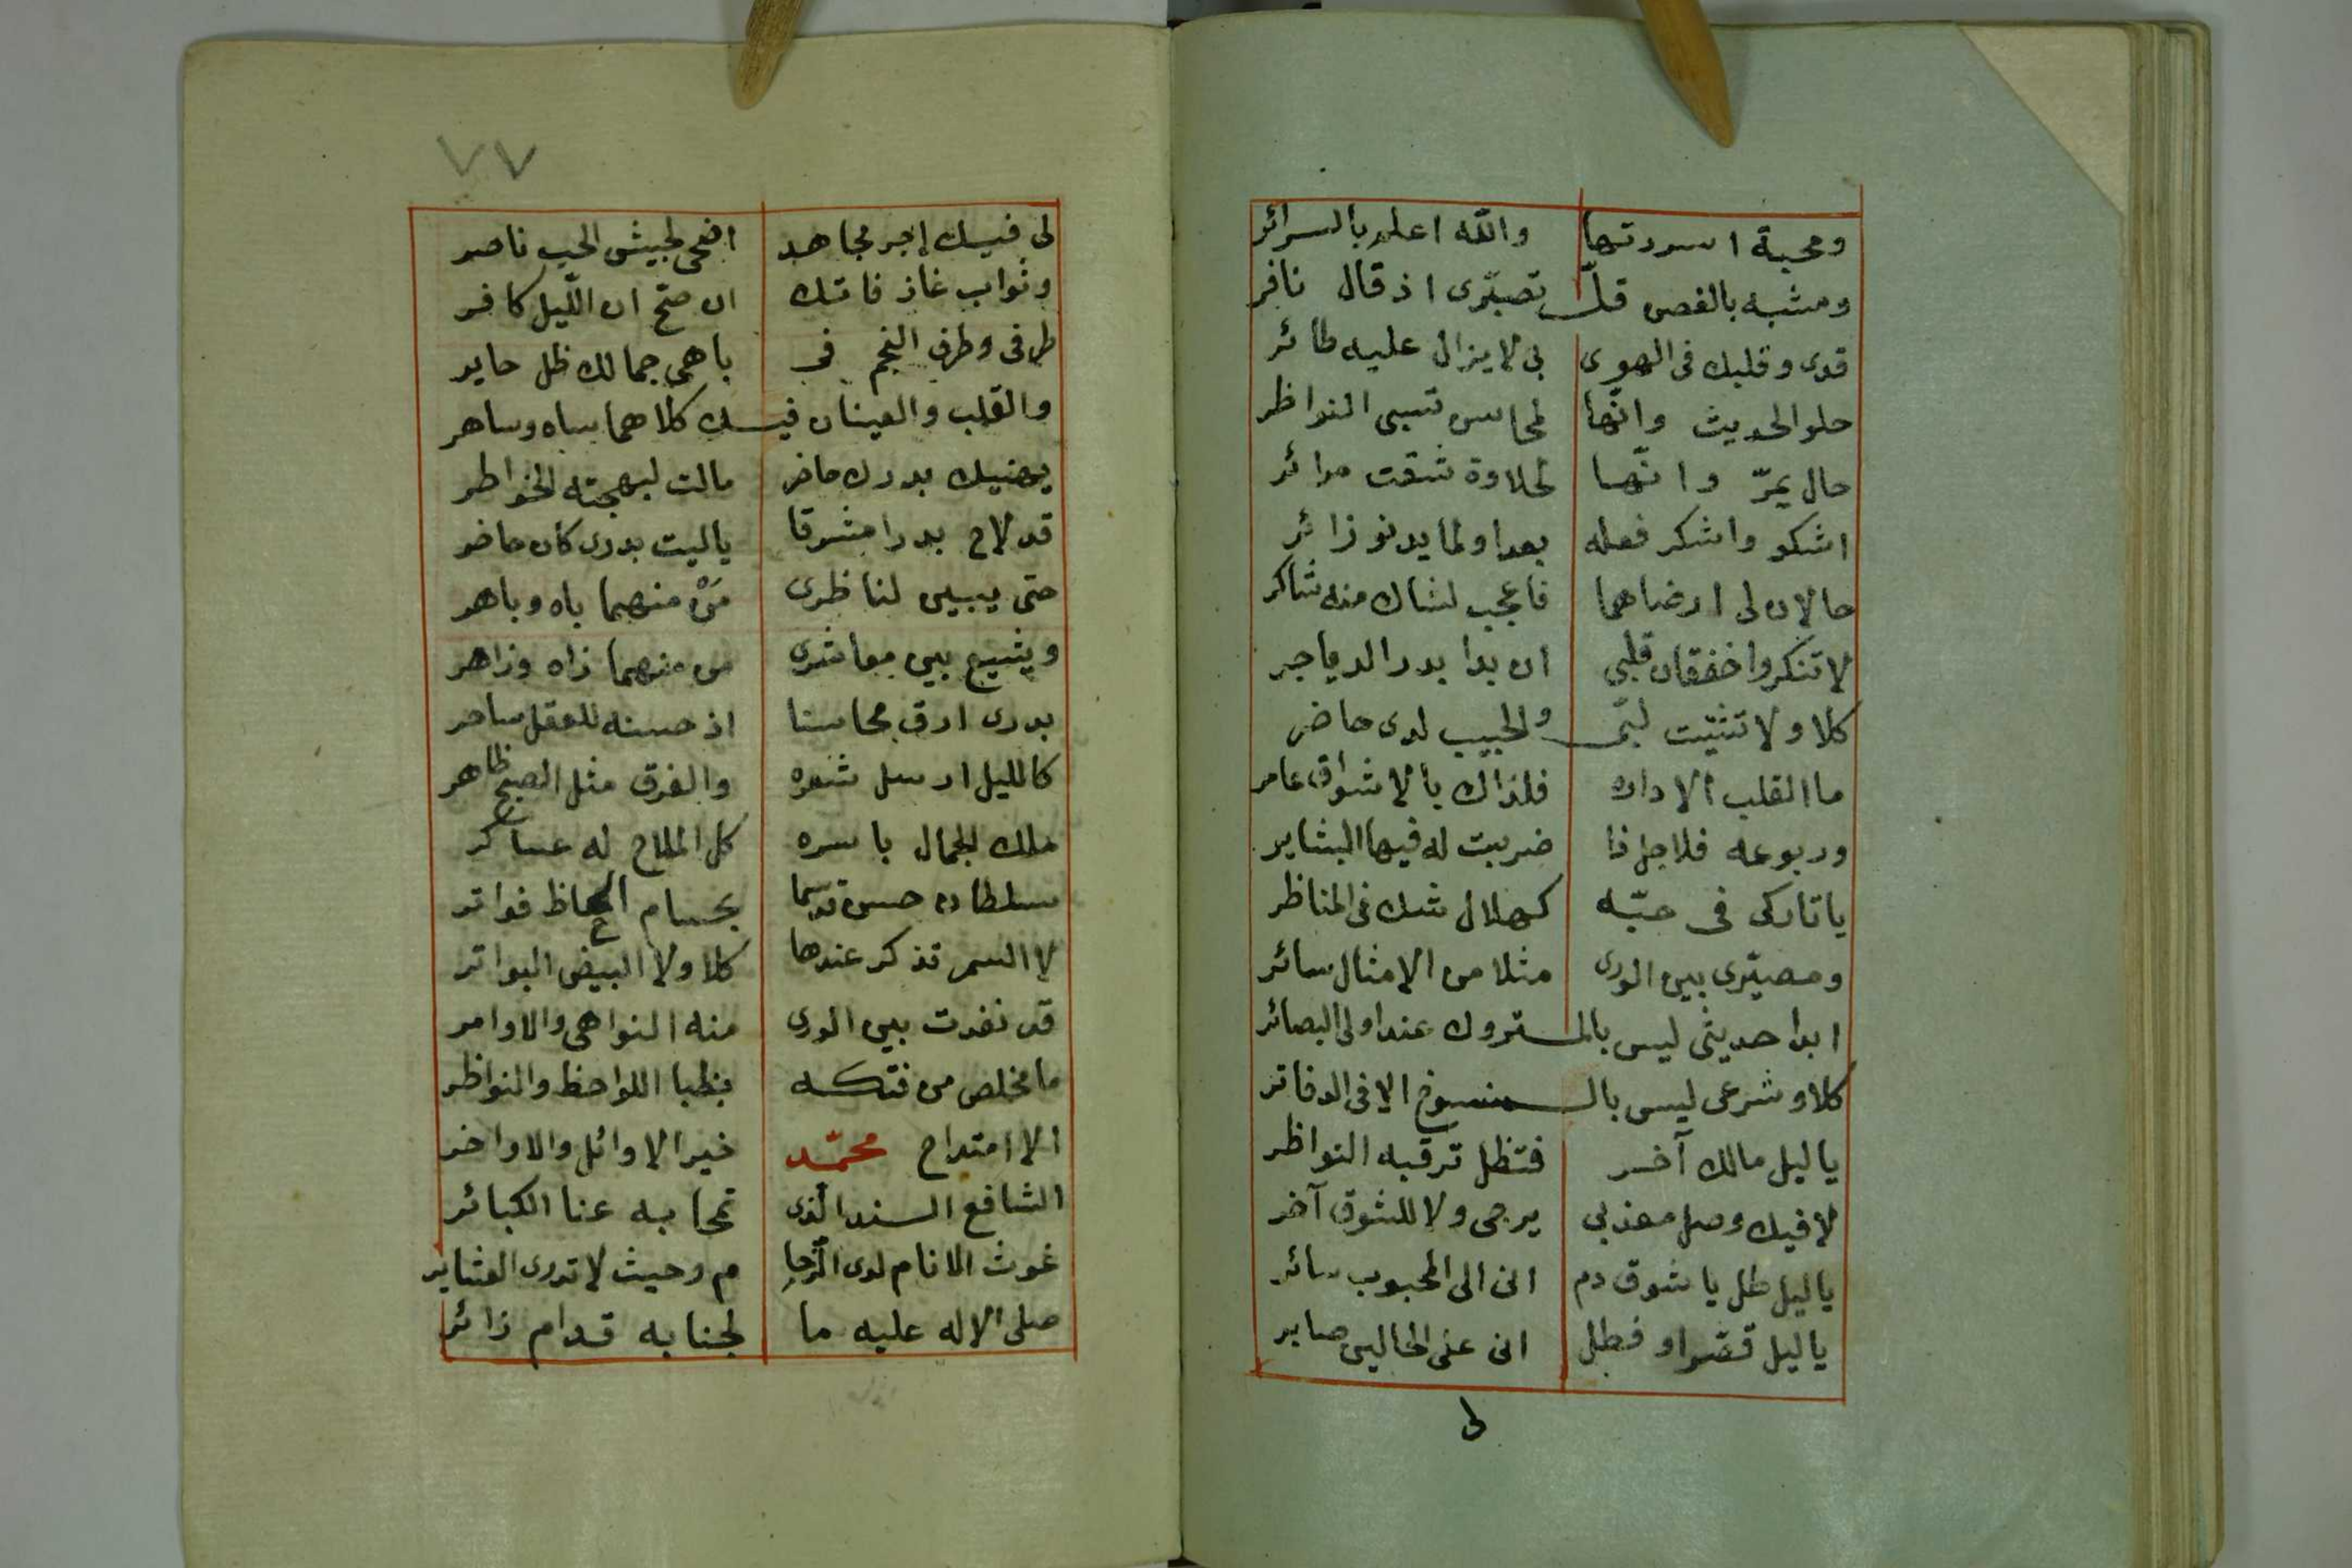 ومحبة اسررتها والله اعلم بالسرائر
ومشبه بالغصن قلبي تصبّرى اذ قال نافر
قدى وقلبك فى الهوى بى لا يزال عليه طائر
حلو الحديث وانّها لمحاسن تسبى النواظر
حال يمرّ وانّها لحلاوة شقت مرائر
اشكو واشكر فعله بعدا ولما يدنو زائر
حالان لى ارضاهما فاعجب لشاك منه شاكر
لا تنكروا خفقان قلبى ان بدا بدر الدياجر
كلا ولا تثبّت لبّى والحبيب لدى حاضر
ما القلب الا داره فلذاك بالاشواق عامر
وربوعه فلاجل ذا ضربت له فيها البشاير
يا تاركى فى حبّه كهلال شك فى المناظر
ومصيّرى بين الورى مثلا من الامثال سائر
ابدا حديثى ليس بالمتروك عند اولى البصائر
كلا وشرعى ليس بالمنسوخ الا فى الدفاتر
يا ليل مالك آخر فتظل ترقبه النواظر
لا فيك وصل معذبى يرجى ولا للشوق آخر
يا ليل طل يا شوق دم انى الى المحبوب سائر
يا ليل قصّر او فطل انى على الحالين صابر
لى
٧٧
لى فيك اجر مجاهد اضحى لجيش الحب ناصر
وثواب غاز فاتك ان صحّ ان اللّيل كافر
طرفى وطرف النجم فى باهى جمالك ظل حاير
والقلب والعينان فيك كلاهما ساه وساهر
يهنيك بدرك حاضر مالت لبهجته الخواطر
قد لاح بدرا مشرقا يا ليت بدرى كان حاضر
حتى يبين لناظرى مَنْ منهما باه وباهر
ويشيع بين معاشرى من منهما زاه وزاهر
بدرى ارق محاسنا اذ حسنه للعقل ساحر
كالليل ارسل شعره والفرق مثل الصبح ظاهر
ملك الجمال باسره كل الملاح له عساكر
سلطان حسن قد سما بحسام الحاظ فواتر
لا السمر تذكر عندها كلا ولا البيض البواتر
قد نفدت بين الورى منه النواهى والاوامر
ما مخلص من فتكه بظبا اللواحظ والنواظر
الا امتداح محمّد خير الاوائل والاواخر
الشافع السند الذى تمحا به عنا الكبائر
غوث الانام لدى الزحا م وحيث لا تدرى العشاير
صلى الاله عليه ما لجنابه قدام زائر